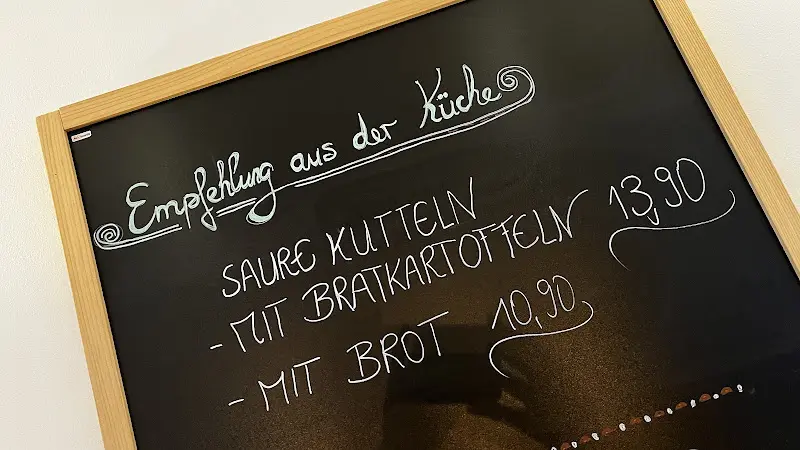 Empfehlung aus der Küche
SAURE KUTTELN
- MIT BRATKARTOFFELN 13,90
- MIT BROT 10,90